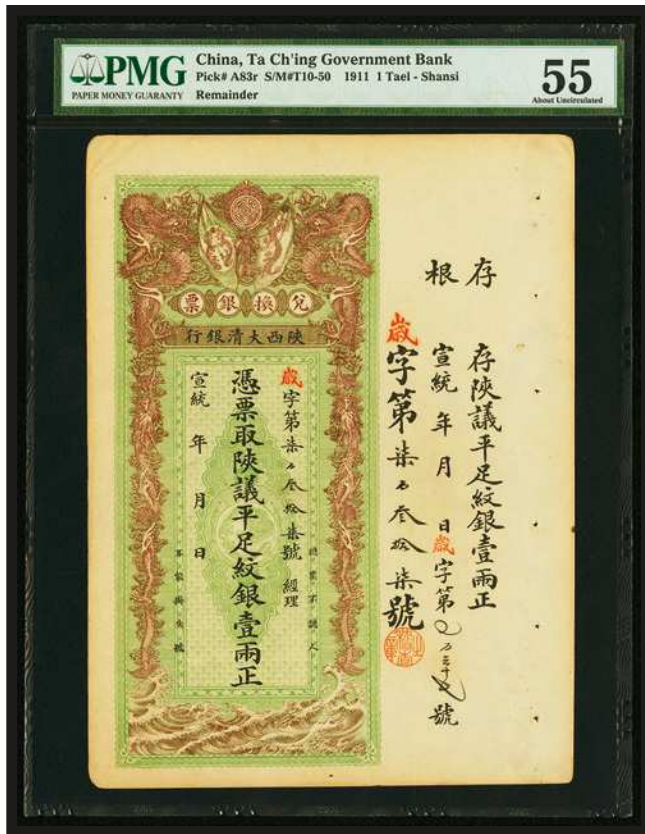 PMG
PAPER MONEY GUARANTY
China, Ta Ch'ing Government Bank
Pick# A83r S/M#T10-50 1911 1 Tael - Shansi
Remainder
55
About Uncirculated
兌換銀票
陝西大清銀行
歲字第柒百叁拾柒號 經理
憑票取陝議平足紋銀壹兩正
宣統 年 月 日
認票不認人
不能掛失號
存根
存陝議平足紋銀壹兩正
宣統 年 月 日 歲字第 號
歲字第柒百叁拾柒號